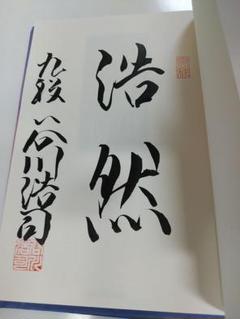 浩然
九段 谷川浩司